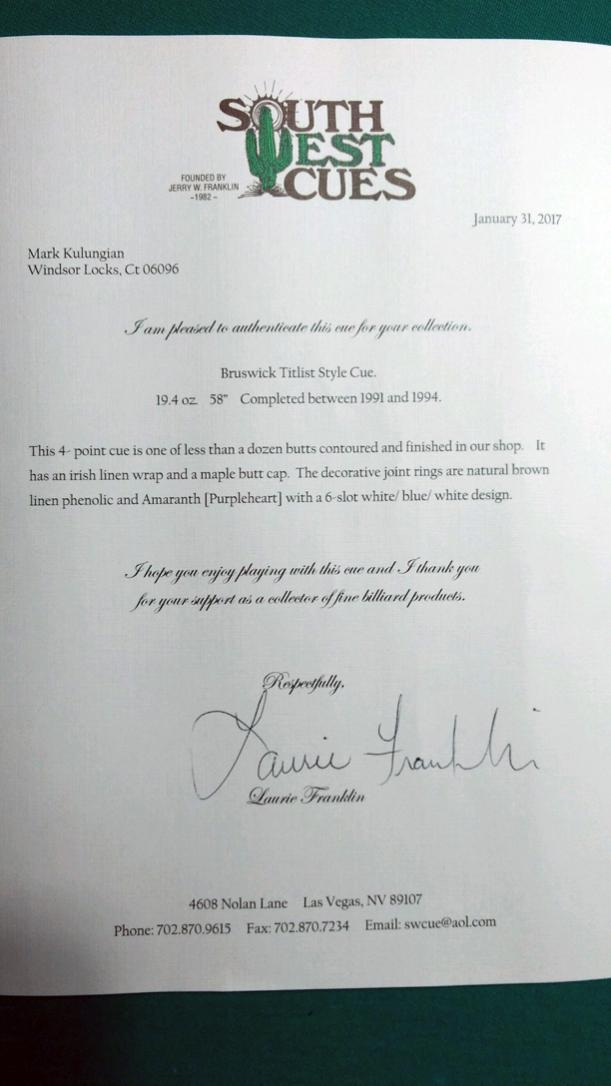 SOUTH
WEST
CUES
FOUNDED BY
JERRY W. FRANKLIN
-1982-
January 31, 2017
Mark Kulungian
Windsor Locks, Ct 06096
I am pleased to authenticate this cue for your collection.
Bruswick Titlist Style Cue.
19.4 oz. 58" Completed between 1991 and 1994.
This 4- point cue is one of less than a dozen butts contoured and finished in our shop. It
has an irish linen wrap and a maple butt cap. The decorative joint rings are natural brown
linen phenolic and Amaranth [Purpleheart] with a 6-slot white/ blue/ white design.
I hope you enjoy playing with this cue and I thank you
for your support as a collector of fine billiard products.
Respectfully,
Laurie Franklin
Laurie Franklin
4608 Nolan Lane Las Vegas, NV 89107
Phone: 702.870.9615 Fax: 702.870.7234 Email: swcue@aol.com